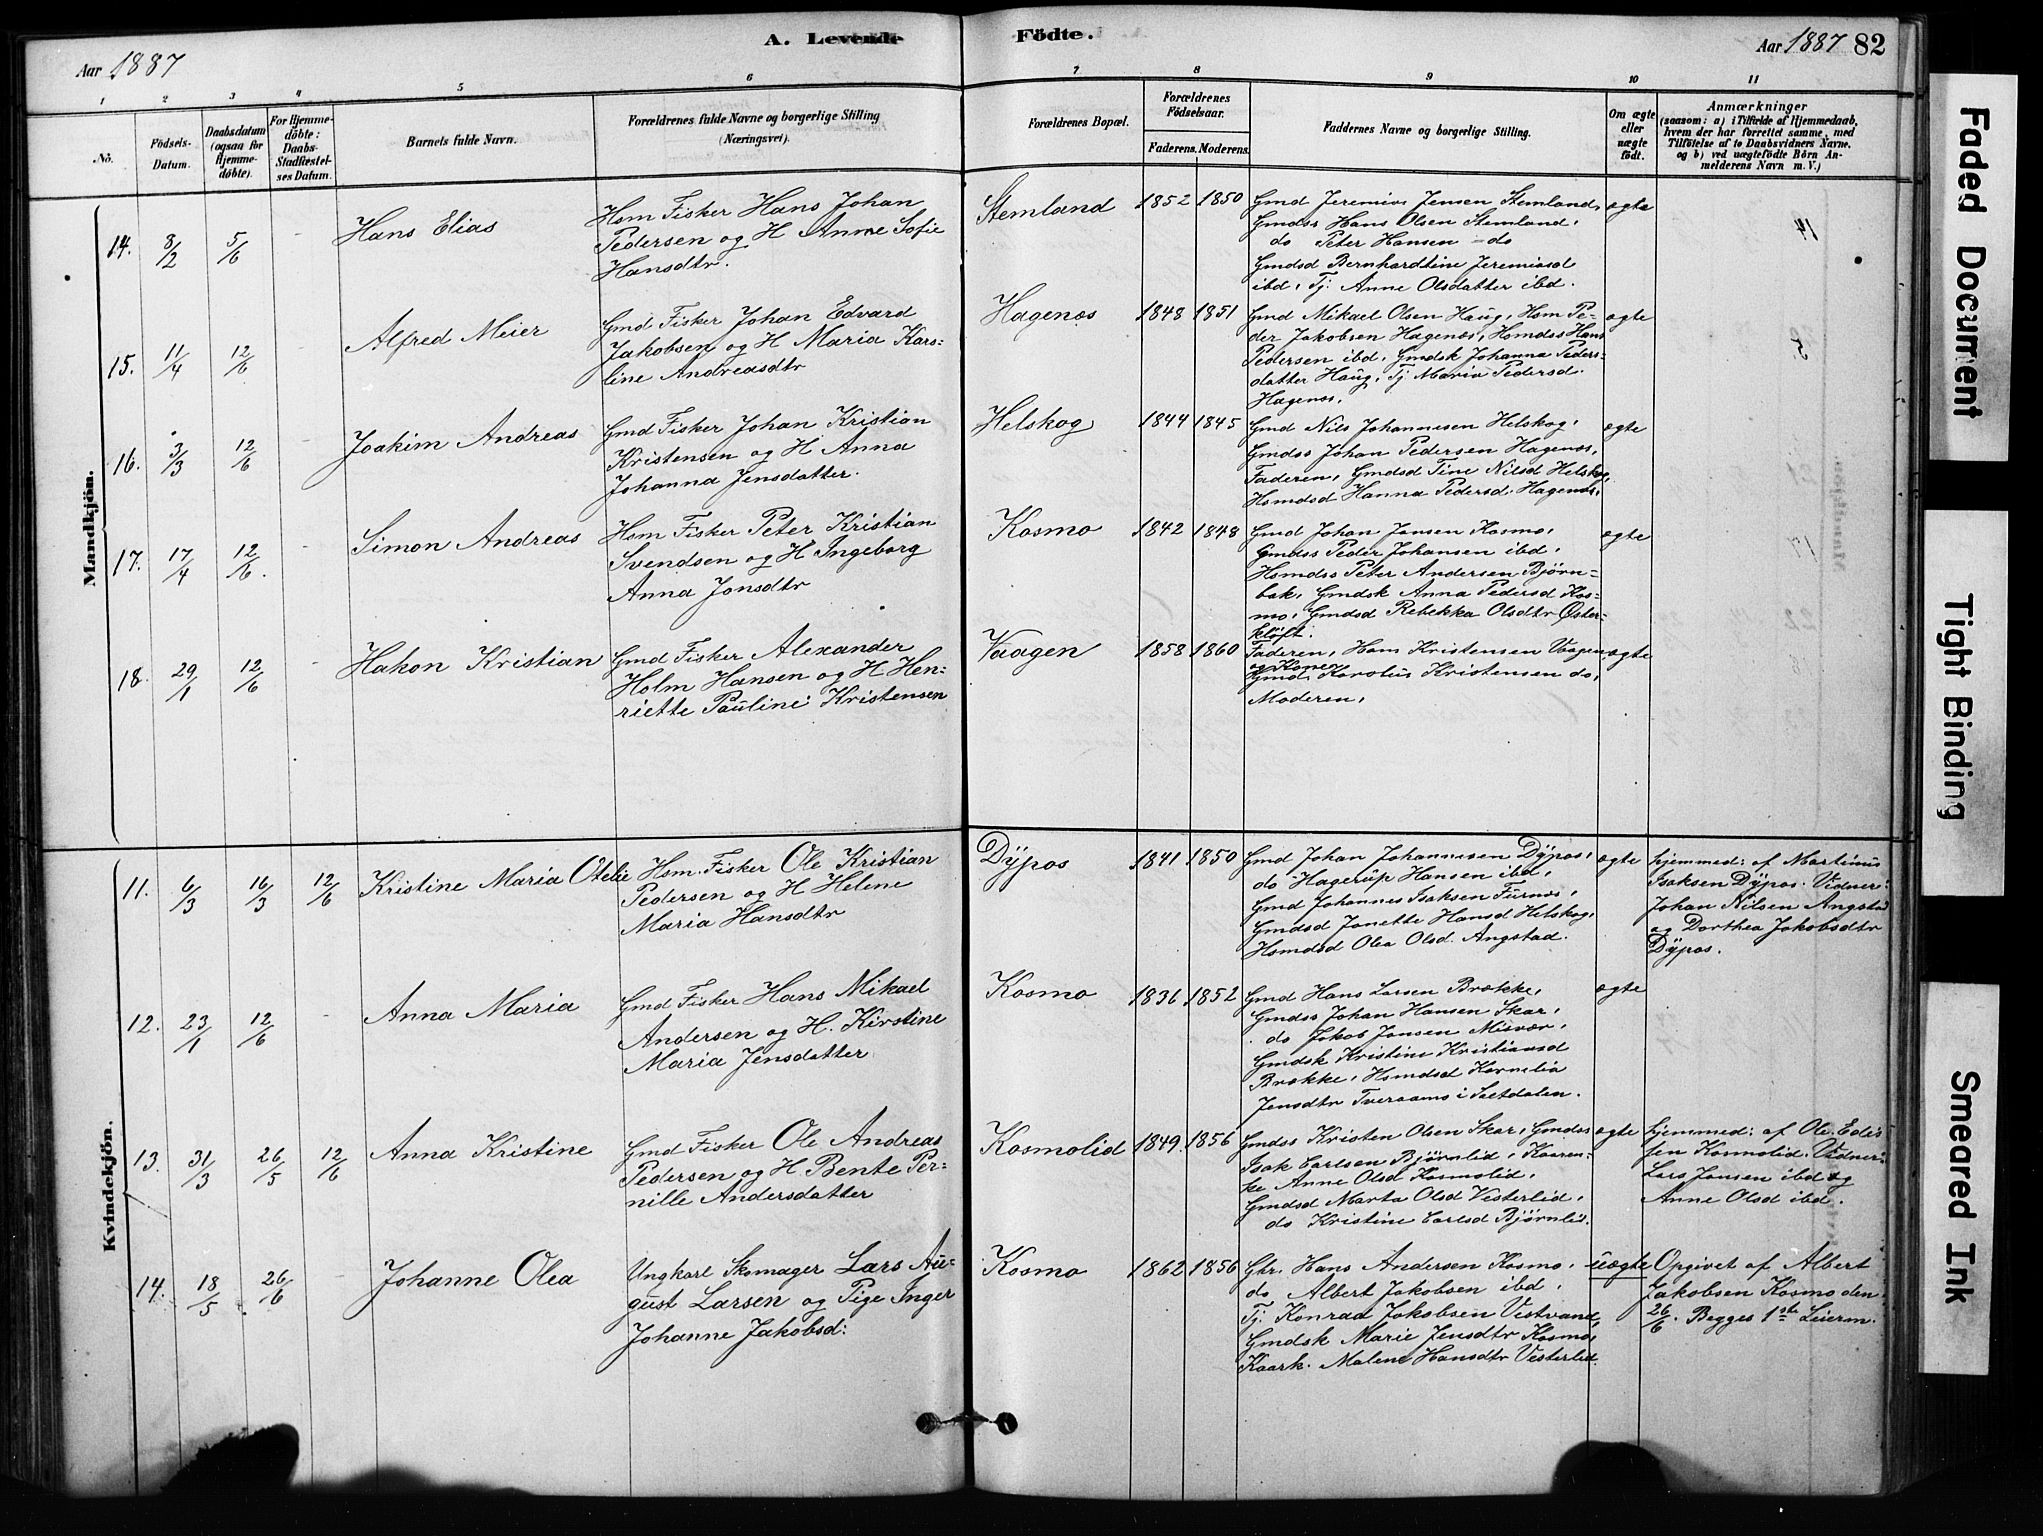 A. Levende Födte.
Aar 1887
Aar 1887 82
1 2 3 4 5 6 7 8 9 10 11
No.
Födsels-
Datum.
Daabsdatum
(ogsaa for
Hjemme-
döbte).
For Hjemme-
döbte:
Daabs-
Stadfæstel-
ses Datum.
Barnets fulde Navn.
Forældrenes fulde Navne og borgerlige Stilling
(Næringsvei).
Forældrenes Bopæl.
Forældrenes
Födselsaar.
Faderens. Moderens.
Faddernes Navne og borgerlige Stilling.
Om ægte
eller
uægte
födt.
Anmærkninger
(saasom: a) i Tilfælde af Hjemmedaab,
hvem der har forrettet samme, med
Tilföielse af to Daabsvidners Navne.
og b) ved uægtefödte Börn An-
melderens Navn m. V.)
Mandkjön.
14. 8/2 5/6 - Hans Elias
Hsm Fisker Hans Johan
Pedersen og H Anne Sofie
Hansdtr.
Stemland 1852 1850
Gmd Jeremias Jensen Stemland,
Gmdss Hans Olsen Stemland,
do Peter Hansen - do
Gmdsd Bernhardtine Jeremiasd
ibd, Tj. Anne Olsdatter ibd.
ægte
15. 11/4 12/6 - Alfred Meier
Gmd Fisker Johan Edvard
Jakobsen og H Maria Kars-
line Andreasdtr
Hagenæs 1848 1851
Gmd Mikael Olsen Haug, Hsm Pe-
der Jakobsen Hagenæs, Hsmdss Hans
Pedersen ibd, Gmdsk Johanna Peders-
datter Haug, Tj Maria Pedersd.
Hagenæs.
ægte
16. 3/3 12/6 - Joakim Andreas
Gmd Fisker Johan Kristian
Kristensen og H Anna
Johanna Jensdatter.
Helskog 1844 1845
Gmd Nils Johannesen Helskog,
Gmdss Johan Pedersen Hagenæs,
Faderen, Gmdsd Tine Nilsd Helskog,
Hsmdsd Hanna Pedersd. Hagenæs.
ægte
17. 17/4 12/6. - Simon Andreas
Hsm Fisker Peter Kristian
Svendsen og H Ingeborg
Anna Jonsdtr
Kosmo 1842 1848
Gmd Johan Jonsen Kosmo,
Gmdss Peder Johansen ibd,
Hsmdss Peter Andersen Bjørn-
bak, Gmdsk Anna Pedersd Kos-
mo, Gmdsd Rebekka Olsdtr Øster-
kløft.
ægte
18. 29/1 12/6 - Hakon Kristian
Gmd Fisker Alexander
Holm Hansen og H Hen-
riette Pauline Kristensen
Vaagen 1858 1860
Faderen, Hans Kristensen Vaagen,
og Kone
Gmd. Karolus Kristensen do,
Moderen,
ægte
Kvindekjön.
11. 6/3 16/3 12/6 Kristine Maria Otelie
Hsm. Fisker Ole Kristian
Pedersen og H Helene
Maria Hansdtr
Dÿpos 1841 1850
Gmd Johan Johannesen Dÿpos,
do Hagerup Hansen ibd,
Gmd Johannes Isaksen Furnes,
Gmdsd Janette Hansd Helskog,
Hsmdsd Olea Olsd. Angstad.
ægte
hjemmed: af Martinus
Isaksen Dÿpos. Vidner:
Johan Nilsen Angstad
og Dorthea Jakobsdtr
Dÿpos.
12. 23/1 12/6 - Anna Maria
Gmd Fisker Hans Mikael
Andersen og H. Kirstine
Maria Jensdatter
Kosmo 1836 1852
Gmd Hans Larsen Brække,
Gmdss Johan Hansen Skar,
do Jakob Jonsen Misvær,
Gmdsk Kristine Kristiansd
Brække, Hsmdsd Kornelia
Jensdtr Tveraamo i Saltdalen.
ægte
13. 31/3 26/5 12/6 Anna Kristine
Gmd Fisker Ole Andreas
Pedersen og H Bente Per-
nille Andersdatter
Kosmolid 1849. 1856
Gmdss Kristen Olsen Skar, Gmdss
Isak Carlsen Bjørnlid, Kaaren-
ke Anne Olsd Kosmolid,
Gmdsd Marta Olsd Vesterlid,
do Kristine Carlsd Bjørnlid.
ægte
hjemmed: af Ole Edis
sen Kosmolid. Vidner:
Lars Jonsen ibd og
Anne Olsd ibd.
14. 18/5 26/6 - Johanne Olea
Ungkarl Skomager Lars Au-
gust Larsen og Pige Inger
Johanne Jakobsd:
Kosmo 1862 1856
Gbr. Hans Andersen Kosmo,
do Albert Jakobsen ibd,
Tj. Konrad Jakobsen Vestvand,
Gmdsk Marie Jensdtr Kosmo,
Kaark. Malene Hansdtr Vesterlid
uægte
Opgivet af Albert
Jakobsen Kosmo den
26/6. Begges 1ste Leierm.
Faded Document
Tight Binding
Smeared Ink